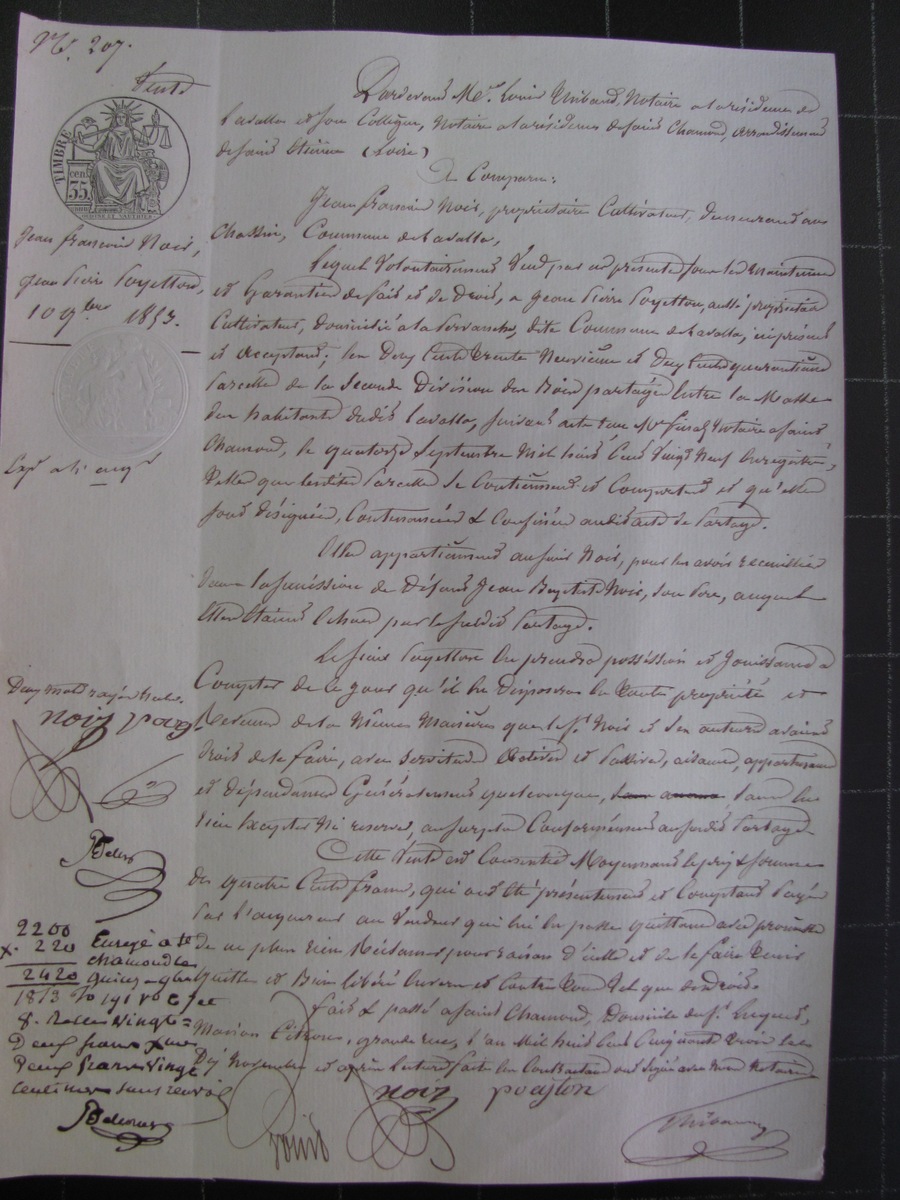 N.° 207.
Vente
TIMBRE
35
Jean françois Noir,
Jean Pierre Poyetton,
10 9bre 1853.
Deux mots rayés nuls.
noir
2200
x. 220 Enregé a St
chamond le
2420 quinze 9bre
1853 fo 191 Vo C
8. Reçu vingt
Deux francs
Deux francs vingt
centimes
Pardevant Me. Louis Thibaud, Notaire a la résidence de
Lavalla et son Collègue, Notaire a la résidence de saint Chamond, arrondissement
de saint Etienne (Loire)
A Comparu:
Jean françois Noir, propriétaire Cultivateur, demeurant au
Chassin, Commune de Lavalla,
Lequel Volontairement Vend par ces présentes sous les Maintenue
et Garantie de fait et de Droit, a Jean Pierre Poyetton, aussi propriétaire
Cultivateur, domicilié a la dite Commune de Lavalla, ici présent
et acceptant; les Deux Cent trente Neuvième et Deux Cent quarantième
Parcelle de la Seconde Division des Bois partagés Entre la Masse
des habitants dudit Lavalla, suivant acte reçu Me Notaire a saint
Chamond, le quatorze Septembre Mil huit Cent Vingt Neuf Enregistré,
Telles que lesdites Parcelles Se Contiennent et Comportent et qu'elles
sont Désignées, Contenancées & Confinées audit acte de Partage.
Elles appartiennent au sieur Noir, pour les avoir recueillies
dans la succession de Défunt Jean Baptiste Noir, son Père, auquel
Elles Etaient Echues par le susdit Partage.
Le sieur Poyetton En prendra possession et Jouissance a
Compter de ce jour qu'il En Disposera En toute propriété et
de la Même Manière que le sr. Noir et Ses auteurs avaient
Droit de le faire, avec servitudes Actives et Passives, aisances, appartenances
et dépendances Généralement quelconques, sans En
rien Excepter Ni reserver, au surplus Conformément au susdit Partage
Cette Vente est Consentie Moyennant le prix & somme
de quatre Cents francs, qui ont été présentement et Comptant Payés
Par l'acquéreur au Vendeur qui lui En passe quittance avec promesse
de ne plus rien Réclamer pour raison d'icelle et de le faire tenir
Quitte et Bien libéré Envers et Contre tous tel que de droit.
Fait & passé a saint Chamond, Domicile du sr.
Marion Citerne, grande rue, l'an Mil huit Cent Cinquante Trois Le
Dix Novembre et après lecture faite les Contractants ont Signé avec Nous Notaires
noir poyton
Thibaud